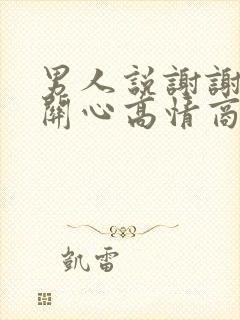 男人說謝謝
關心高情商
凱雷